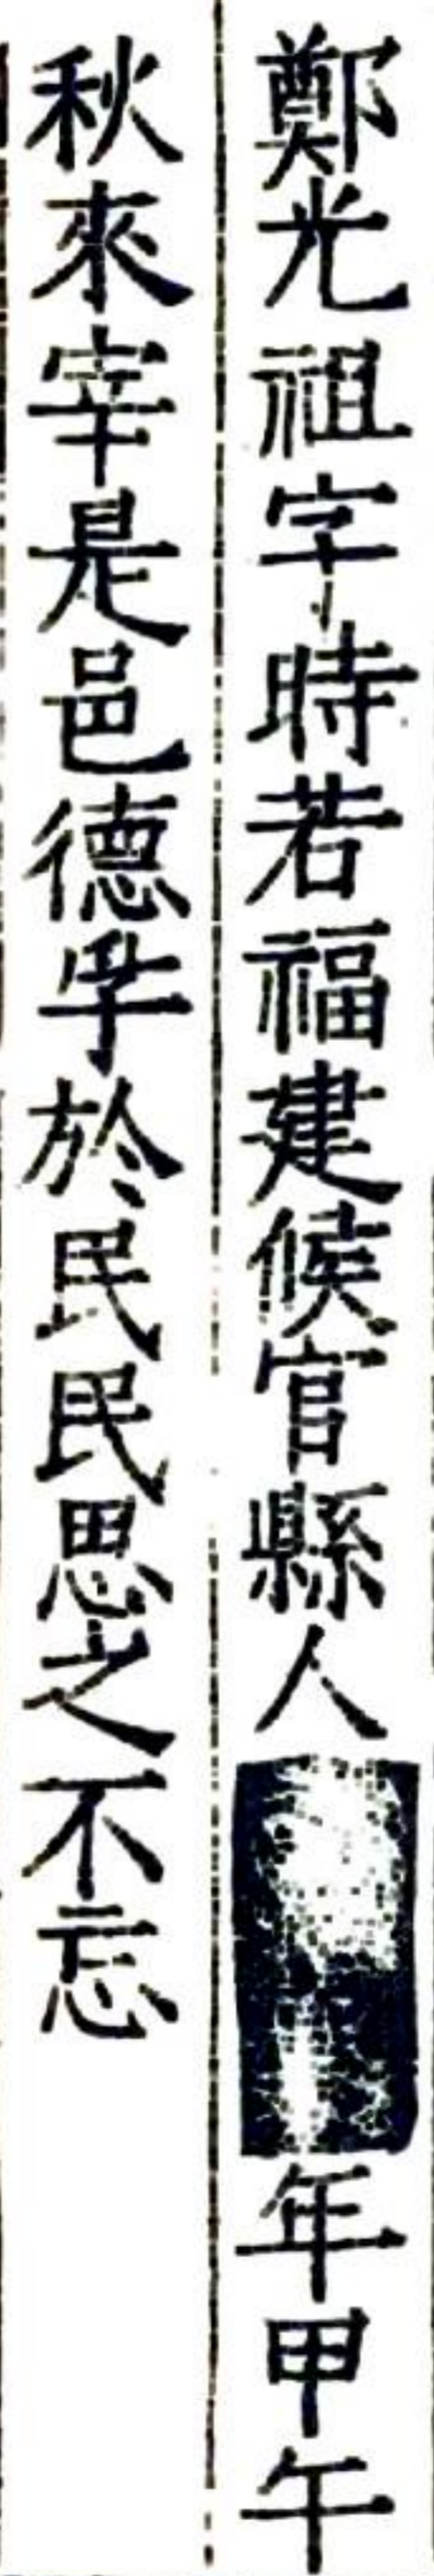 鄭光祖字時若福建候官縣人年甲午
秋來宰是邑德孚於民民思之不忘